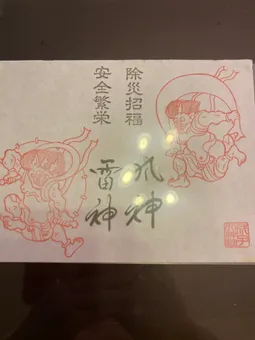 除災招福
安全繁栄
風神
雷神